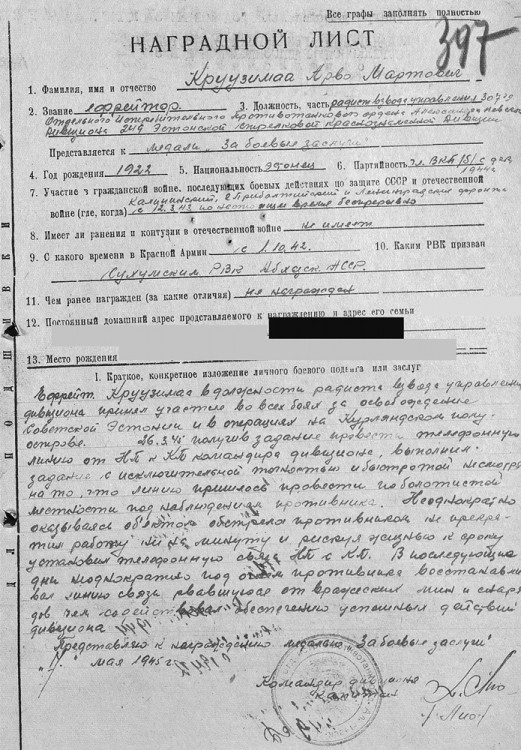 Все графы заполнять полностью
397
НАГРАДНОЙ ЛИСТ
1. Фамилия, имя и отчество Круузимаа Арво Мартович
2. Звание ефрейтор 3. Должность, часть радист взвода управления 307го
Отдельного истребительного противотанкового ордена Александра Невского
Дивизиона 249 Эстонской стрелковой Краснознаменной Дивизии
Представляется к медали „За боевые заслуги"
4. Год рождения 1922 5. Национальность эстонец 6. Партийность чл. ВКП/б/ с
1944г
7. Участие в гражданской войне, последующих боевых действиях по защите СССР и отечественной
Калининский, Прибалтийский и Ленинградский фронты
войне (где, когда) с 12.3.43 по настоящее время беспрерывно
8. Имеет ли ранения и контузии в отечественной войне не имеет
9. С какого времени в Красной Армии с 1.10.42. 10. Каким РВК призван
Сухумским РВК Абхазс. АССР.
11. Чем ранее награжден (за какие отличия) не награжден
12. Постоянный домашний адрес представляемого к награждению и адрес его семьи
13. Место рождения
I. Краткое, конкретное изложение личного боевого подвига или заслуг
Ефрейт. Круузимаа в должности радиста взвода управления
дивизиона принял участие во всех боях за освобождение
Советской Эстонии и в операциях на Курляндском полу-
острове. 26.3.45 получив задание провести телефонную
линию от НП к КП командира дивизиона, выполнил
задание с исключительной точностью и быстротой несмотря
на то, что линию пришлось провести по болотистой
местности под наблюдением противника. Неоднократно
оказываясь объектом обстрела противником не прекра-
тил работу ни на минуту и рискуя жизнью к сроку
установил телефонную связь НП с КП. В последующие
дни неоднократно под огнем противника восстанавли-
вал линию связи рвавшуюся от вражеских мин и снаря-
дов чем содействовал обеспечению успешных действий
дивизиона
Представляю к награждению медалью „За боевые заслуги"
мая 1945 г
Командир дивизиона
Капитан
ПОДШИВКИ
ДЛЯ